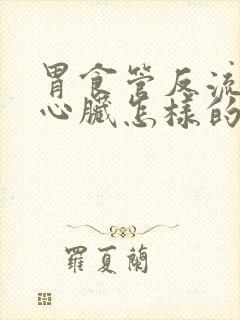 胃食管反流
心臟怎樣的
羅夏蘭